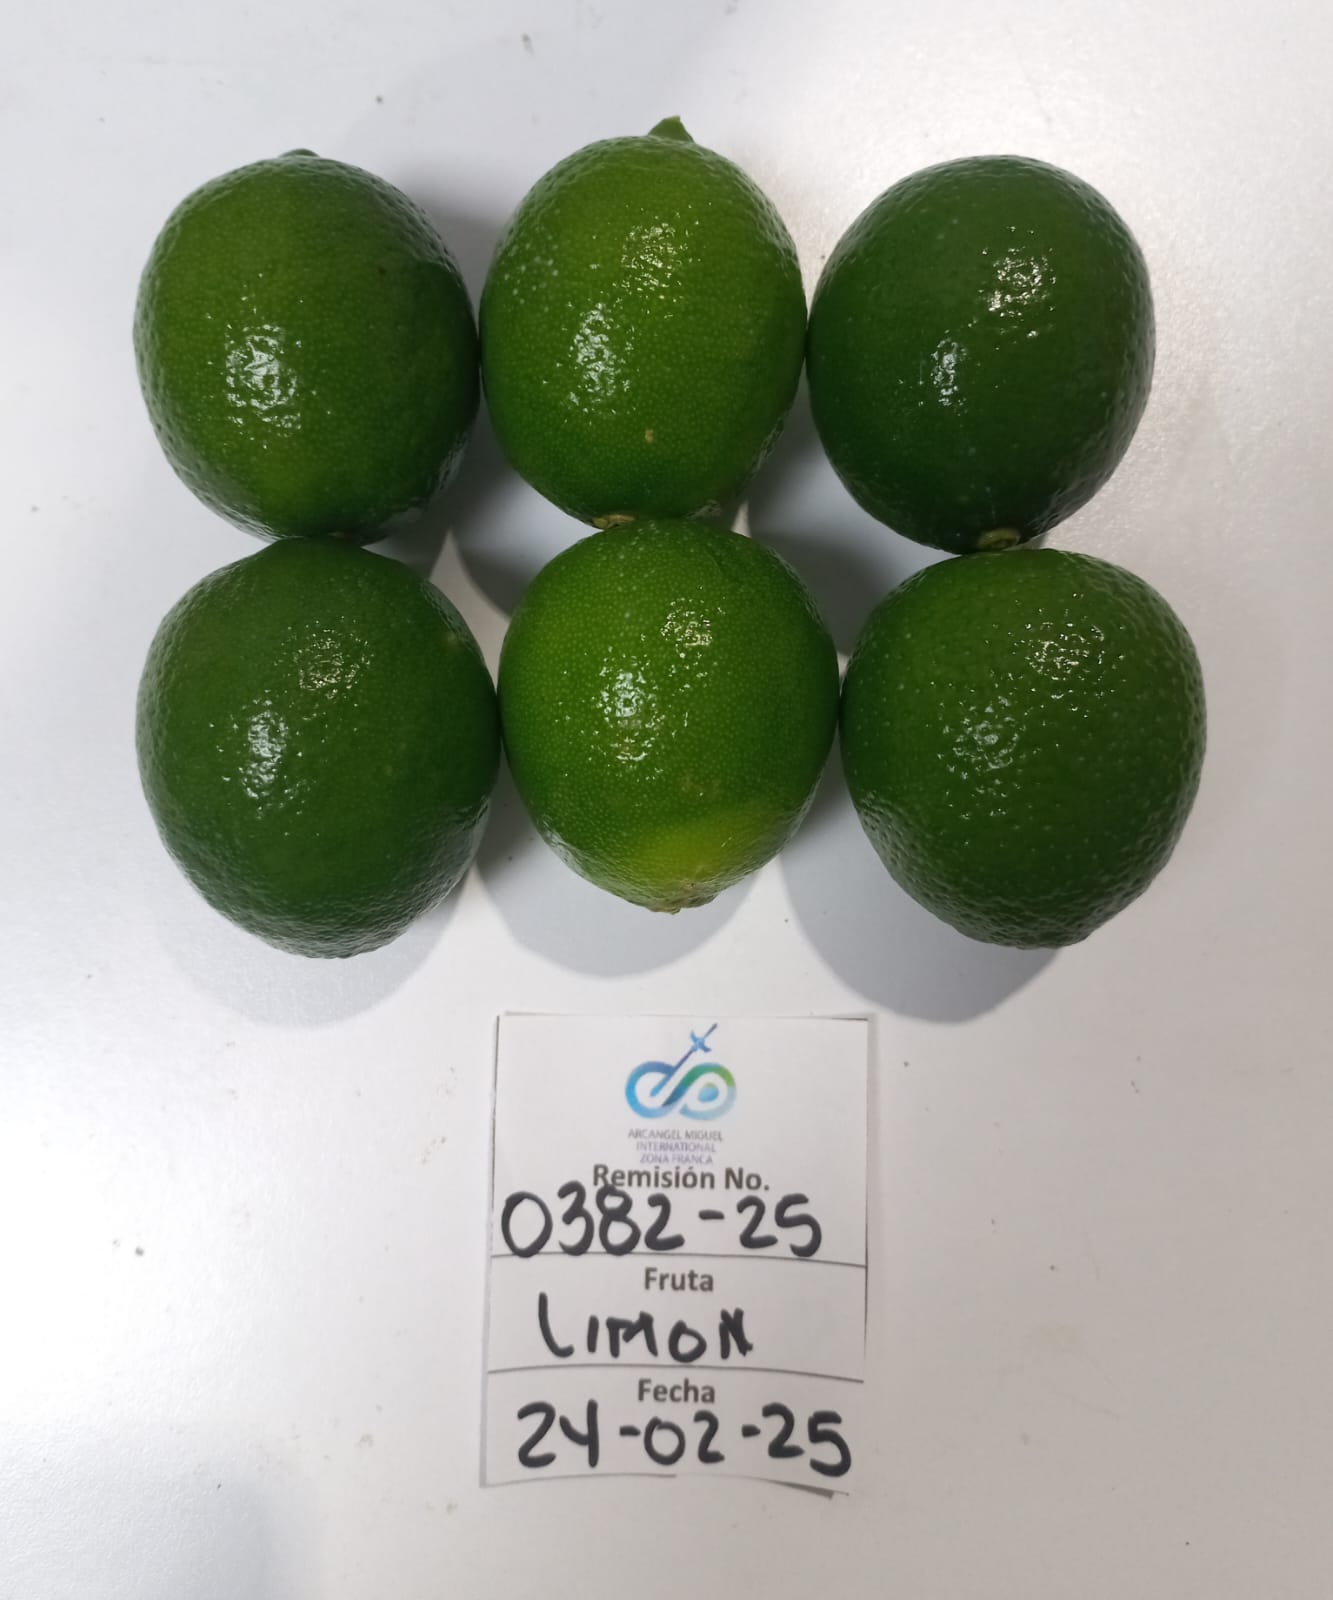 ARCANGEL MIGUEL
INTERNATIONAL
ZONA FRANCA
Remisión No.
0382-25
Fruta
LIMON
Fecha
24-02-25